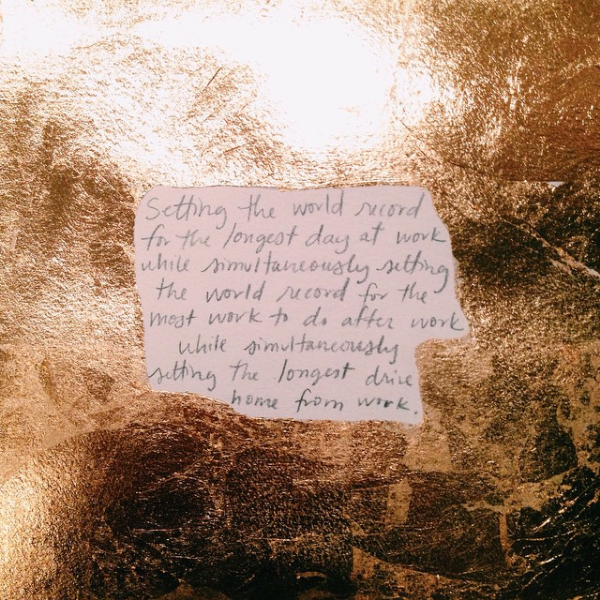 Setting the world record
for the longest day at work
while simultaneously setting
the world record for the
most work to do after work
while simultaneously
setting the longest drive
home from work.